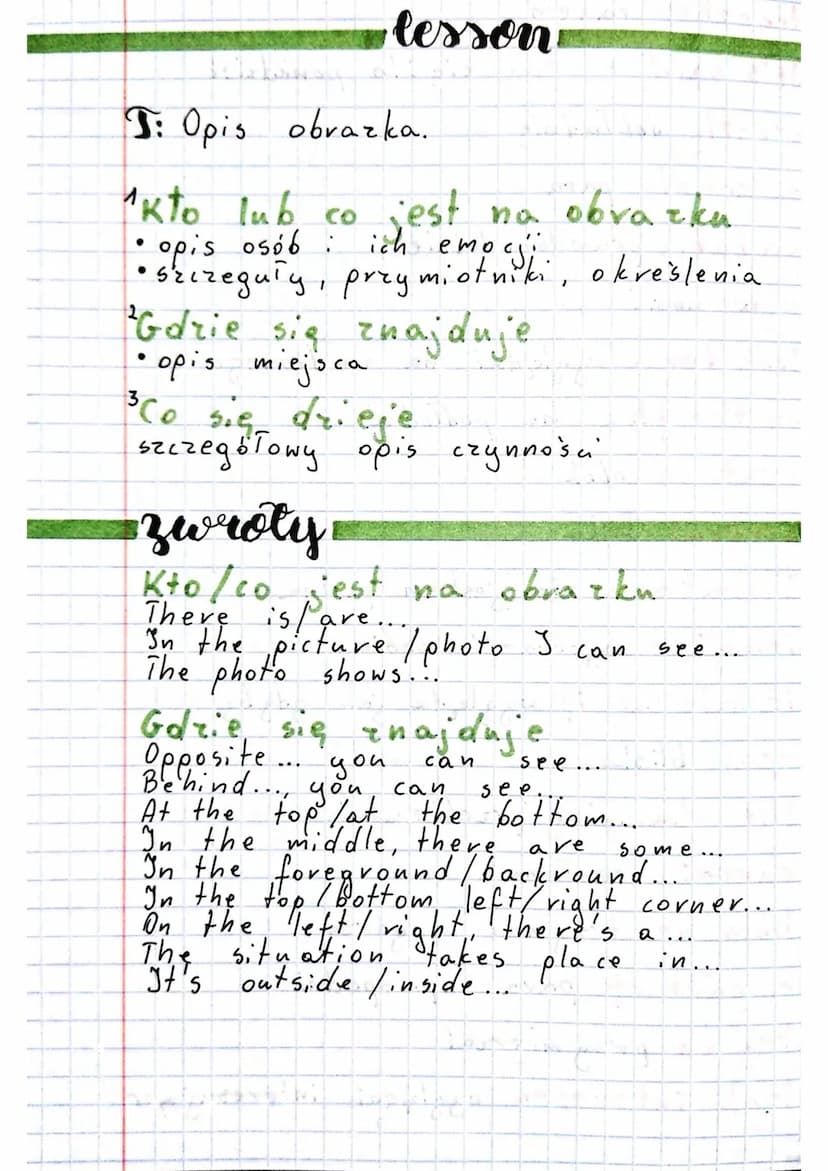 lesson
T: Opis obrazka.
1 Kto lub co jest na obrazku
• opis osób i ich emocji
• szczeguły, przymiotniki, określenia
2 Gdzie się znajduje
• opis miejsca
3 Co się dzieje
szczegółowy opis czynności
zwroty
Kto/co jest na obrazku
There is/are...
In the picture/photo I can see...
The photo shows...
Gdzie się znajduje
Opposite... you can see...
Behind..., you can see...
At the top/at the bottom...
In the middle, there are some...
In the foreground/background...
In the top/bottom left/right corner...
On the left/right, there's a...
The situation takes place in...
It's outside/inside...